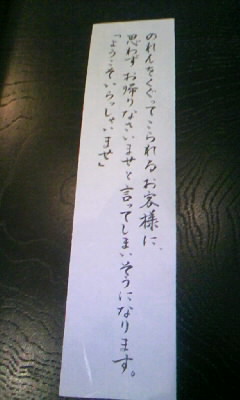 のれんをくぐってこられるお客様に、
思わずお帰りなさいませと言ってしまいそうになります。
「ようこそいらっしゃいませ」